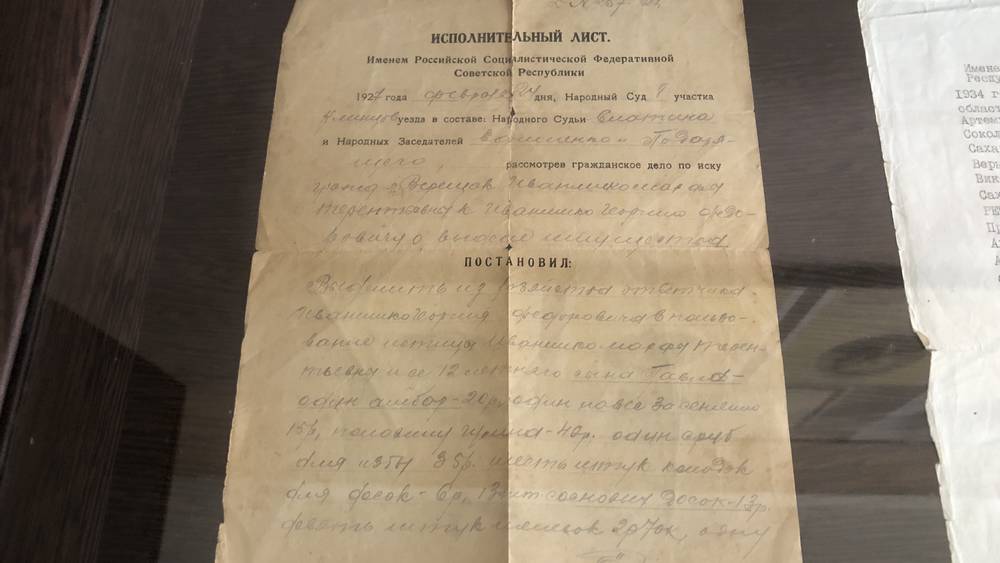 ИСПОЛНИТЕЛЬНЫЙ ЛИСТ.
Именем Российской Социалистической Федеративной
Советской Республики
1927 года февраля 24 дня, Народный Суд 8 участка
уезда в составе: Народного Судьи
и Народных Заседателей и
рассмотрев гражданское дело по иску
Иванишко Марфа
Терентьевна к Иванишко Георгию Федо-
ровичу о выделе имущества
ПОСТАНОВИЛ:
Выделить из хозяйства ответчика
Иванишко Георгия Федоровича в пользо-
вание истицы Иванишко Марфы Терен-
тьевны и ее 12 летнего сына Павла-
один амбар-20р, один
15р, половину -40р. один сруб
для избы 35р. шесть штук колодок
для досок-6р, 13 шт сосновых досок-13р.
девять штук мешков 2р70к, одну
Имена
Респу
1934 г
област
Артем
Сокол
Саха
Верь
Вик
Са
РЕ
Пр
А